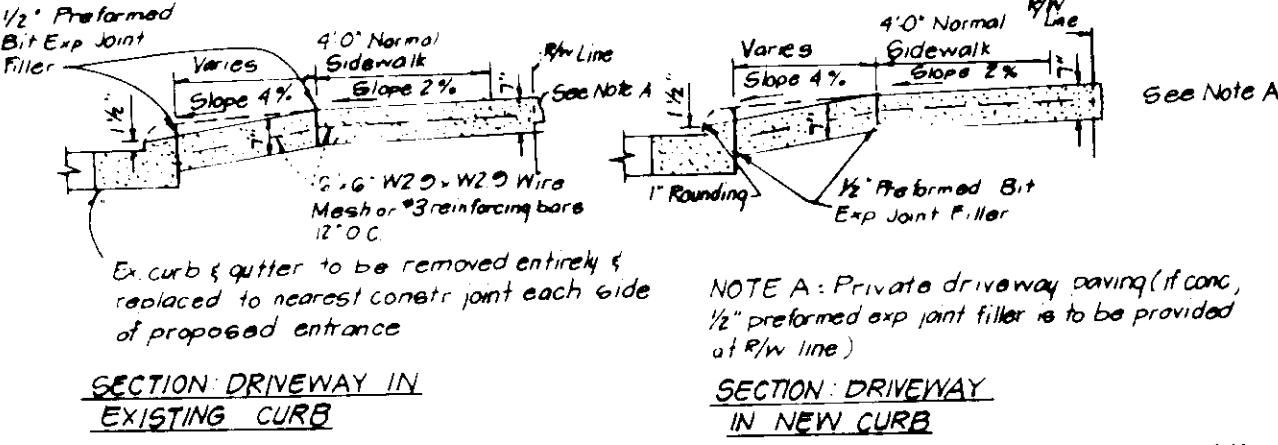 1/2" Preformed
Bit Exp Joint
Filler
Varies
Slope 4%
4'0" Normal
Sidewalk
Slope 2%
7"
R/W Line
See Note A
1 1/2"
7"
6"x6" W2.9 x W2.9 Wire
Mesh or #3 reinforcing bars
12" O.C.
Ex. curb & gutter to be removed entirely &
replaced to nearest constr joint each side
of proposed entrance
SECTION: DRIVEWAY IN
EXISTING CURB
R/W
Line
4'0" Normal
Sidewalk
Slope 2%
Varies
Slope 4%
7"
See Note A
1 1/2"
7"
1" Rounding
1/2" Preformed Bit
Exp Joint Filler
NOTE A: Private driveway paving (if conc,
1/2" preformed exp joint filler is to be provided
at R/W line)
SECTION: DRIVEWAY
IN NEW CURB